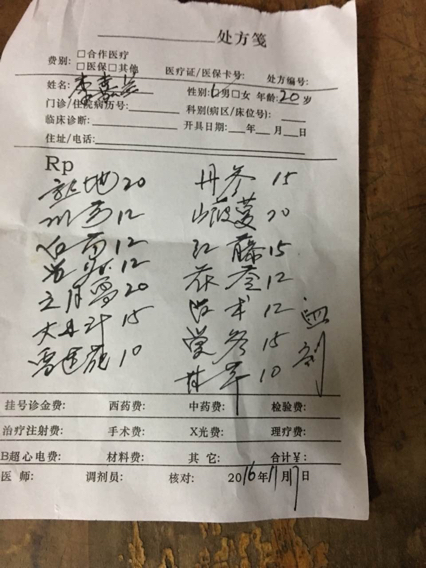 处方笺
费别: □合作医疗
□医保□其他 医疗证/医保卡号: 处方编号:
姓名: 李 性别:□男□女 年龄:20岁
门诊/住院病历号: 科别(病区/床位号):
临床诊断: 开具日期: 年 月 日
住址/电话:
Rp
熟地20 丹参 15
川芎12 山菠萝 20
白芍12 红藤15
当归12 茯苓12
元月雪20 白术 12
大 15 党参 15
10 甘草 10
四剂
挂号诊金费: 西药费: 中药费: 检验费:
治疗注射费: 手术费: X光费: 理疗费:
B超心电费: 材料费: 其 它: 合计¥:
医 师: 调剂员: 核对: 2016年11月17日